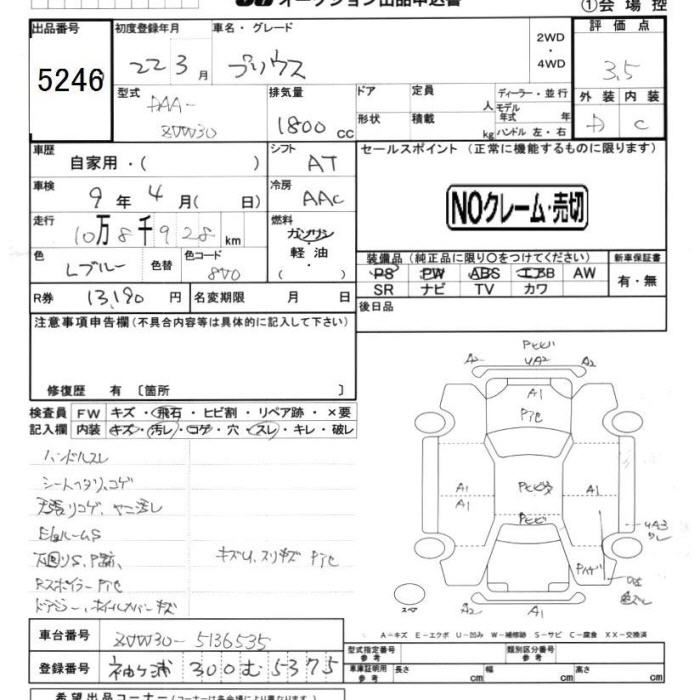 オークション出品申込書 ①会場控
出品番号 初度登録年月 車名・グレード 2WD・4WD 評価点
5246 22 3月 プリウス 3.5
型式 DAA-ZVW30 排気量 1800 cc ドア 形状 定員 人 積載 kg ディーラー・並行 モデル年式 年 ハンドル 左・右 外装 D 内装 C
車歴 自家用・( ) シフト AT セールスポイント (正常に機能するものに限ります)
車検 9年 4月( 日) 冷房 AAC
NOクレーム・売切
走行 10万8千928 km 燃料 ガソリン 軽油 ・( )
色 Lブルー 色替 色コード 8V0
装備品 (純正品に限り○をつけてください) 新車保証書
PS PW ABS エアB AW 有・無
SR ナビ TV カワ
R券 13,190 円 名変期限 月 日 後日品
注意事項申告欄 (不具合内容等は具体的に記入して下さい)
修復歴 有 〔箇所 〕
検査員 FW キズ・飛石・ヒビ割・リペア跡・×要
記入欄 内装 キズ・汚レ・コゲ・穴・スレ・キレ・破レ
ハンドルスレ
シートヘタリ、コゲ
天張リコゲ、ヤニ汚レ
下回りS、P跡、 キズU、スリキズ P化
RスポイラーP化
ドアミラー、ホイルカバーキズ
Pヒビ
A2 UA2 A2
A1
P化
A1 A1 Pヒビ A1
Pヒビ
UA3
スレ
Pハゲ
スペア
A2 A1
A−キズ E−エクボ U−凹み W−補修跡 S−サビ C−腐食 XX−交換済
車台番号 ZVW30-5136535
型式指定番号 参考 類別区分番号 参考
登録番号 袖ヶ浦 300 む 5375
車庫証明用 参考 長さ cm 幅 cm 高さ cm
希望出品コーナー